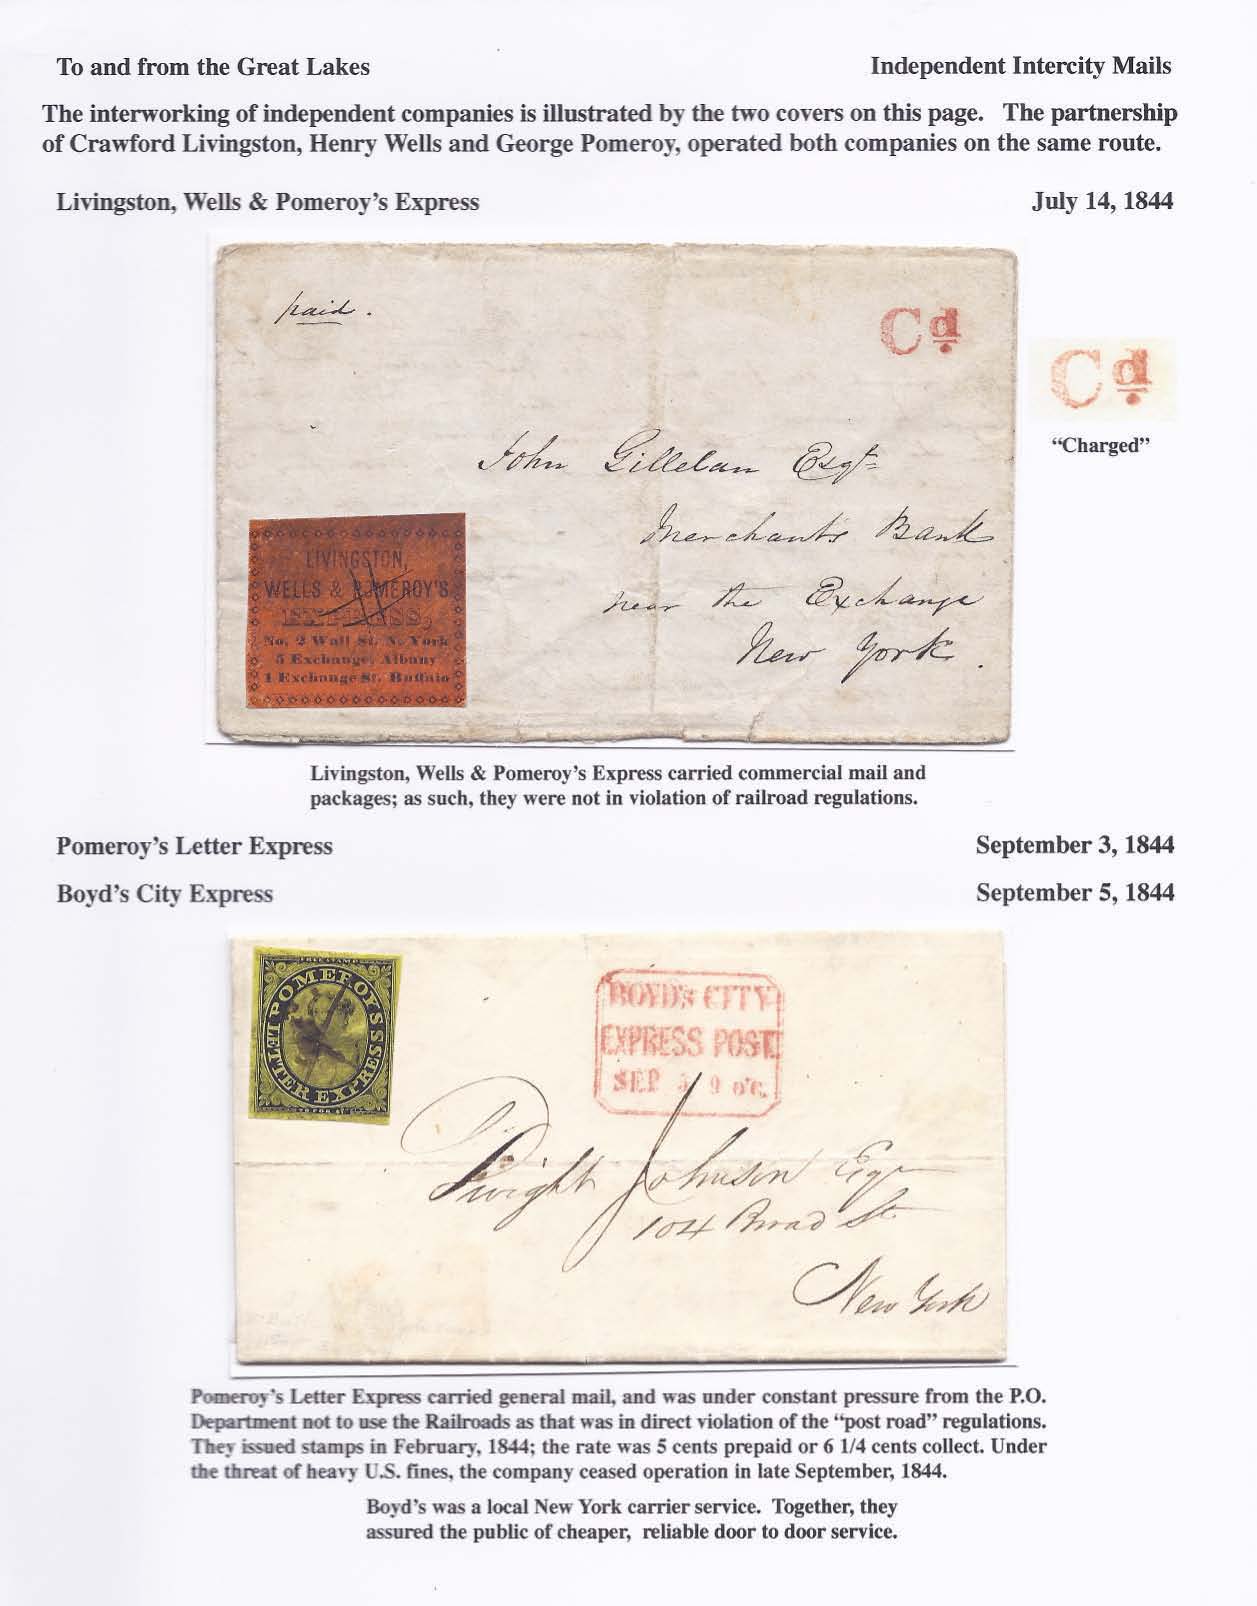 To and from the Great Lakes
Independent Intercity Mails
The interworking of independent companies is illustrated by the two covers on this page. The partnership
of Crawford Livingston, Henry Wells and George Pomeroy, operated both companies on the same route.
Livingston, Wells & Pomeroy's Express
July 14, 1844
paid.
Cd
Cd
"Charged"
John Gillelan Esqr
Merchants Bank
near the Exchange
New York.
LIVINGSTON,
WELLS & POMEROY'S
EXPRESS,
No. 2 Wall St. N. York
5 Exchange, Albany
1 Exchange St. Buffalo
Livingston, Wells & Pomeroy's Express carried commercial mail and
packages; as such, they were not in violation of railroad regulations.
Pomeroy's Letter Express
September 3, 1844
Boyd's City Express
September 5, 1844
FREE STAMP
POMEROY'S
LETTER EXPRESS
BOYD'S CITY
EXPRESS POST
SEP 5 9 o'c.
Dwight Johnson Esqr
104 Broad St
New York
Pomeroy's Letter Express carried general mail, and was under constant pressure from the P.O.
Department not to use the Railroads as that was in direct violation of the "post road" regulations.
They issued stamps in February, 1844; the rate was 5 cents prepaid or 6 1/4 cents collect. Under
the threat of heavy U.S. fines, the company ceased operation in late September, 1844.
Boyd's was a local New York carrier service. Together, they
assured the public of cheaper, reliable door to door service.